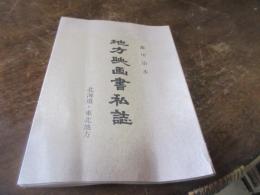 地方映画書私誌
北海道・東北地方